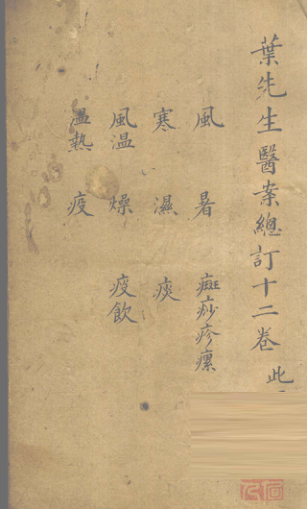 葉先生醫案總訂十二卷 此
風 暑 癍痧疹瘰
寒 濕 痰
風温 燥 疫飲
温熱 疫